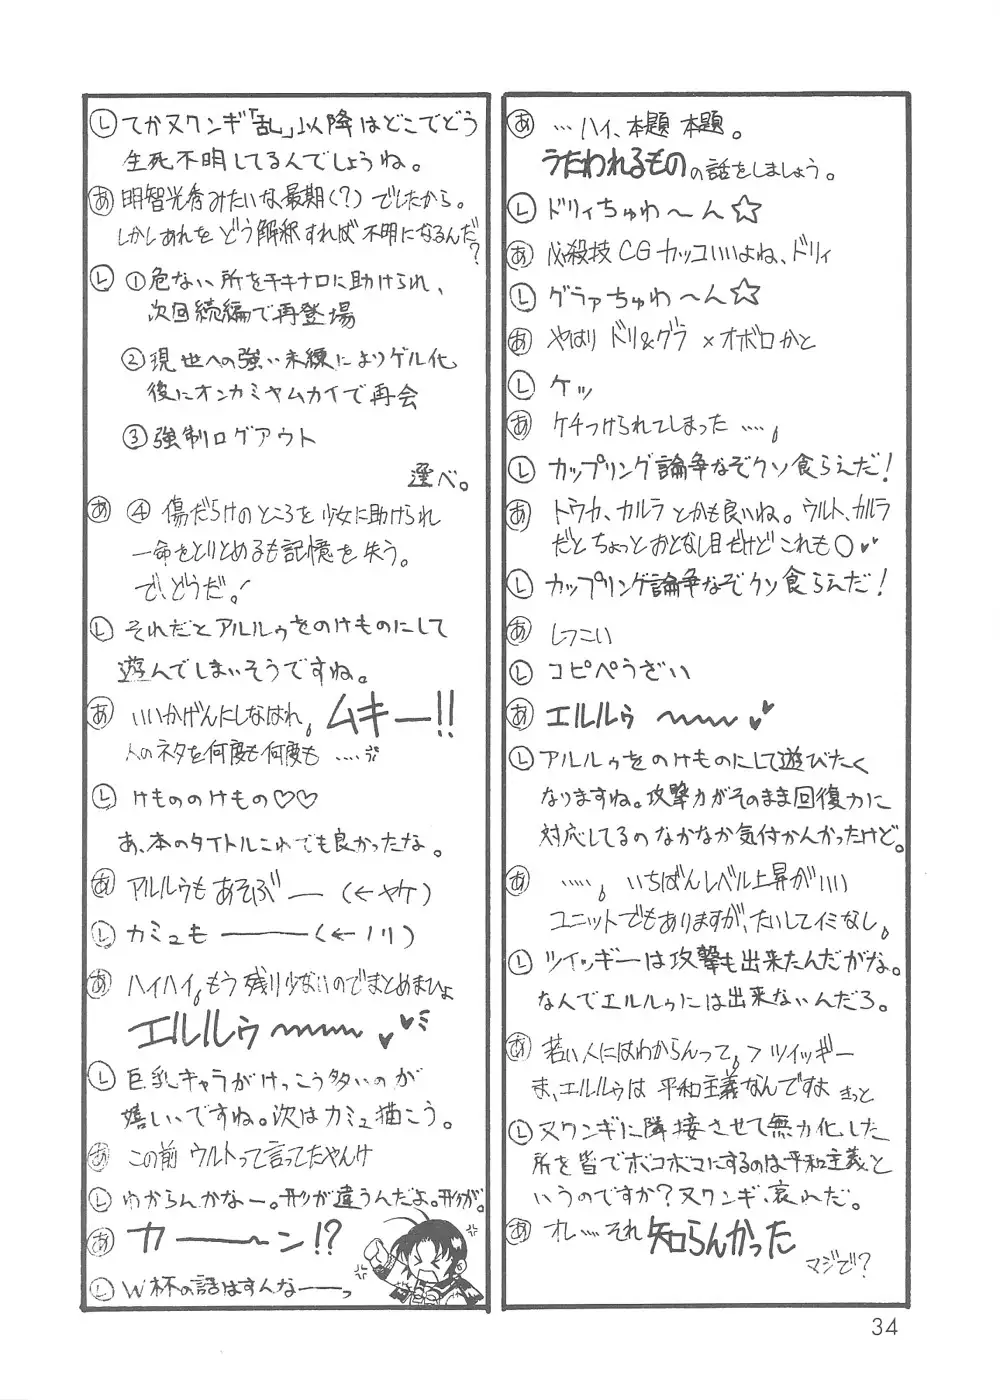 Ⓛ てかヌワンギ「乱」以降はどこでどう
生死不明してるんでしょうね。
あ 明智光秀みたいな最期(?)でしたから。
しかしあれをどう解釈すれば不明になるんだ?
Ⓛ ①危ない所をチキナロに助けられ、
次回続編で再登場
②現世への強い未練によりゲル化
後にオンカミヤムカイで再会
③強制ログアウト
選べ。
あ ④ 傷だらけのところを少女に助けられ
一命をとりとめるも記憶を失う。
で、どうだ!
Ⓛ それだとアルルゥをのけものにして
遊んでしまいそうですね。
あ いいかげんにしなはれ。ムキー!!
人のネタを何度も何度も ……
Ⓛ けもののけもの♡♡
あ、本のタイトルこれでも良かったな。
あ アルルゥもあそぶ― (←ヤケ)
Ⓛ カミュも ――― (←ノリ)
あ ハイハイ。もう残り少ないのでまとめまひょ
エルルゥ 〜〜〜 ♥♥
Ⓛ 巨乳キャラがけっこう多いのが
嬉しいですね。次はカミュ描こう。
あ この前 ウルトって言ってたやんけ
Ⓛ わからんかなー。形が違うんだよ。形が。
あ カ――〜ン!?
Ⓛ W杯の話はすんなーーっ
あ … ハイ、本題 本題。
うたわれるものの話をしましょう。
Ⓛ ドリィちゅわ〜ん☆
あ 必殺技CGカッコいいよね、ドリィ
Ⓛ グラァちゅわ〜ん☆
あ やはり ドリ&グラ×オボロかと
Ⓛ ケッ
あ ケチつけられてしまった ……。
Ⓛ カップリング論争なぞクソ食らえだ!
あ トウカ、カルラ とかも良いね。ウルト、カルラ
だとちょっとおとなし目だけどこれも○♥♥
Ⓛ カップリング論争なぞクソ食らえだ!
あ しつこい
Ⓛ コピペうざい
あ エルルゥ 〜〜〜 ♥♥
Ⓛ アルルゥをのけものにして遊びたく
なりますね。攻撃力がそのまま回復力に
対応してるのなかなか気付かんかったけど。
あ ……。いちばんレベル上昇がいい
ユニットでもありますが、たいしてイミなし。
Ⓛ ツイッギーは攻撃も出来たんだがな。
なんでエルルゥには出来ないんだろ。
あ 若い人にはわからんって。>ツイッギー
ま、エルルゥは 平和主義なんですよ きっと
Ⓛ ヌワンギに隣接させて無力化した
所を皆でボコボコにするのは平和主義と
いうのですか?ヌワンギ、哀れだ。
あ オレ… それ知らんかった
マジで?
34